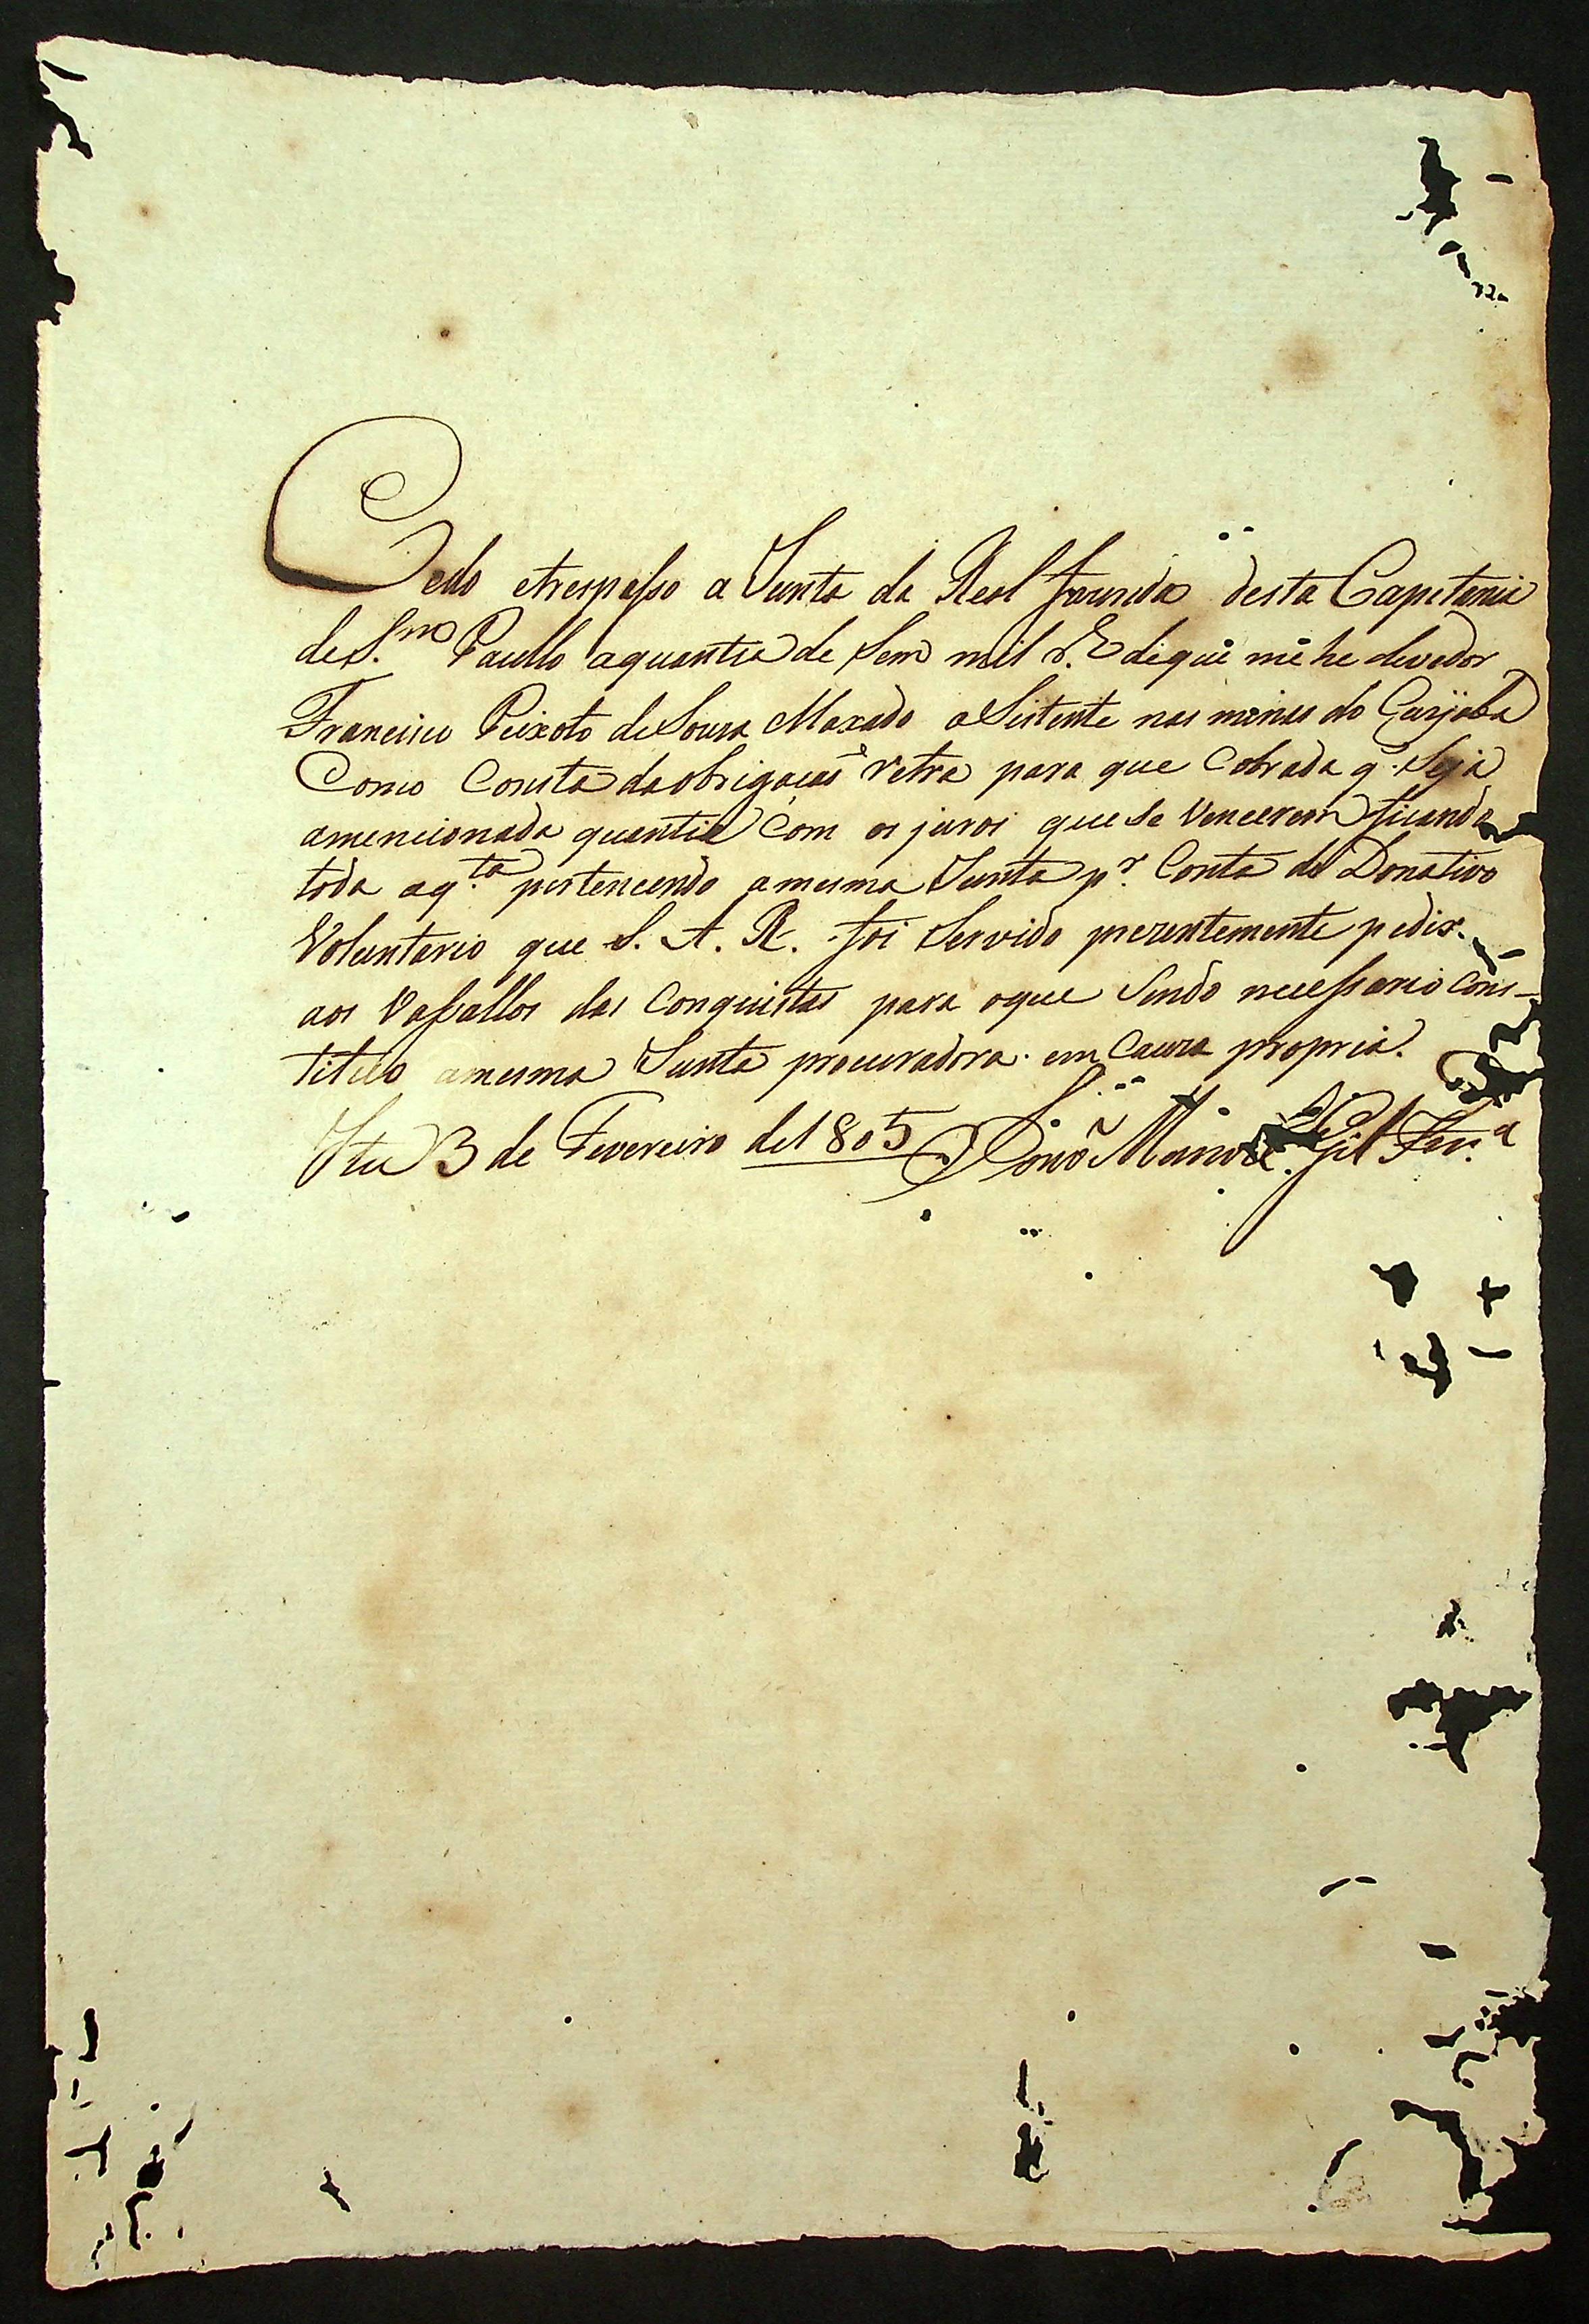 Cedo etrespasso a Junta da Real fazenda desta Capitania
de S.m Paullo aquantia de sem mil r.s de que me he devedor
Francisco Peixoto de Souza Maxado asistente nas minas do Cuyaba
Como Consta da obrigação retra para que Cobrada q. Seja
amencionada quantia Com os juros que se Vencerem ficando
toda aq.ta pertencendo amesma Junta p.r Conta do Donativo
Voluntario que S. A. R. foi Servido prezentemente pedir
aos Vassallos das Conquistas para oque Sendo necessario Cons-
tituo amesma Junta procuradora em Cauza propria.
Ytu 3 de Fevereiro de 1805 Manoel Gil